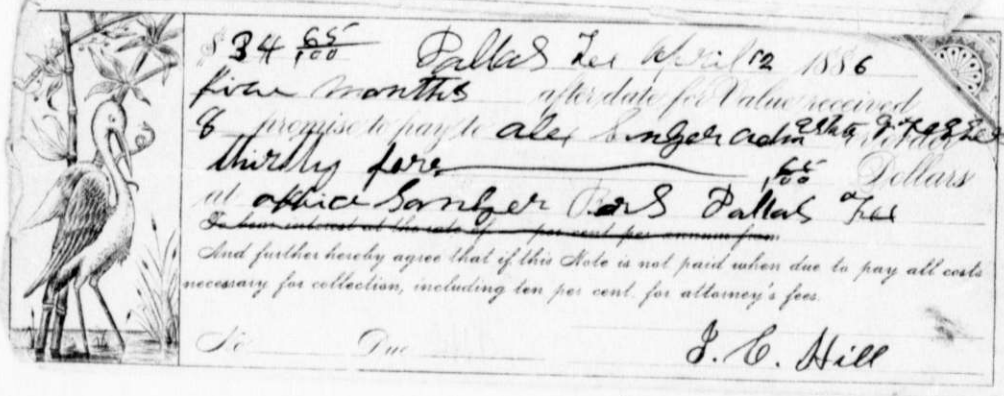 $34 65/100 Dallas Tex April 12 1886
five months after date for Value received
I promise to pay to Alex Sanger adm Estate
thirty four 65/100 Dollars
at office Sanger Bros Dallas Tex
To bear interest at the rate of per cent per annum from
And further hereby agree that if this Note is not paid when due to pay all costs
necessary for collection, including ten per cent. for attorney's fees.
No. Due J. C. Hill